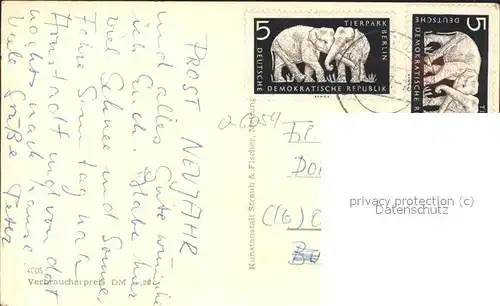 PROST NEUJAHR
und alles Gute wünsche
ich Euch. Habe hier
viel Schnee und Sonne.
Fahre Sonntag nach
Arnstadt und von dort
nachts nach Hause.
Viele Grüße Peter
4005
Verbraucherpreis DM -,20
Kunstanstalt Straub & Fischer, Meiningen
5
TIERPARK
BERLIN
DEUTSCHE
DEMOKRATISCHE REPUBLIK
5
DEUTSCHE
DEMOKRATISCHE
privacy protection overlay
www.ansichtskarten-center.de
(16)